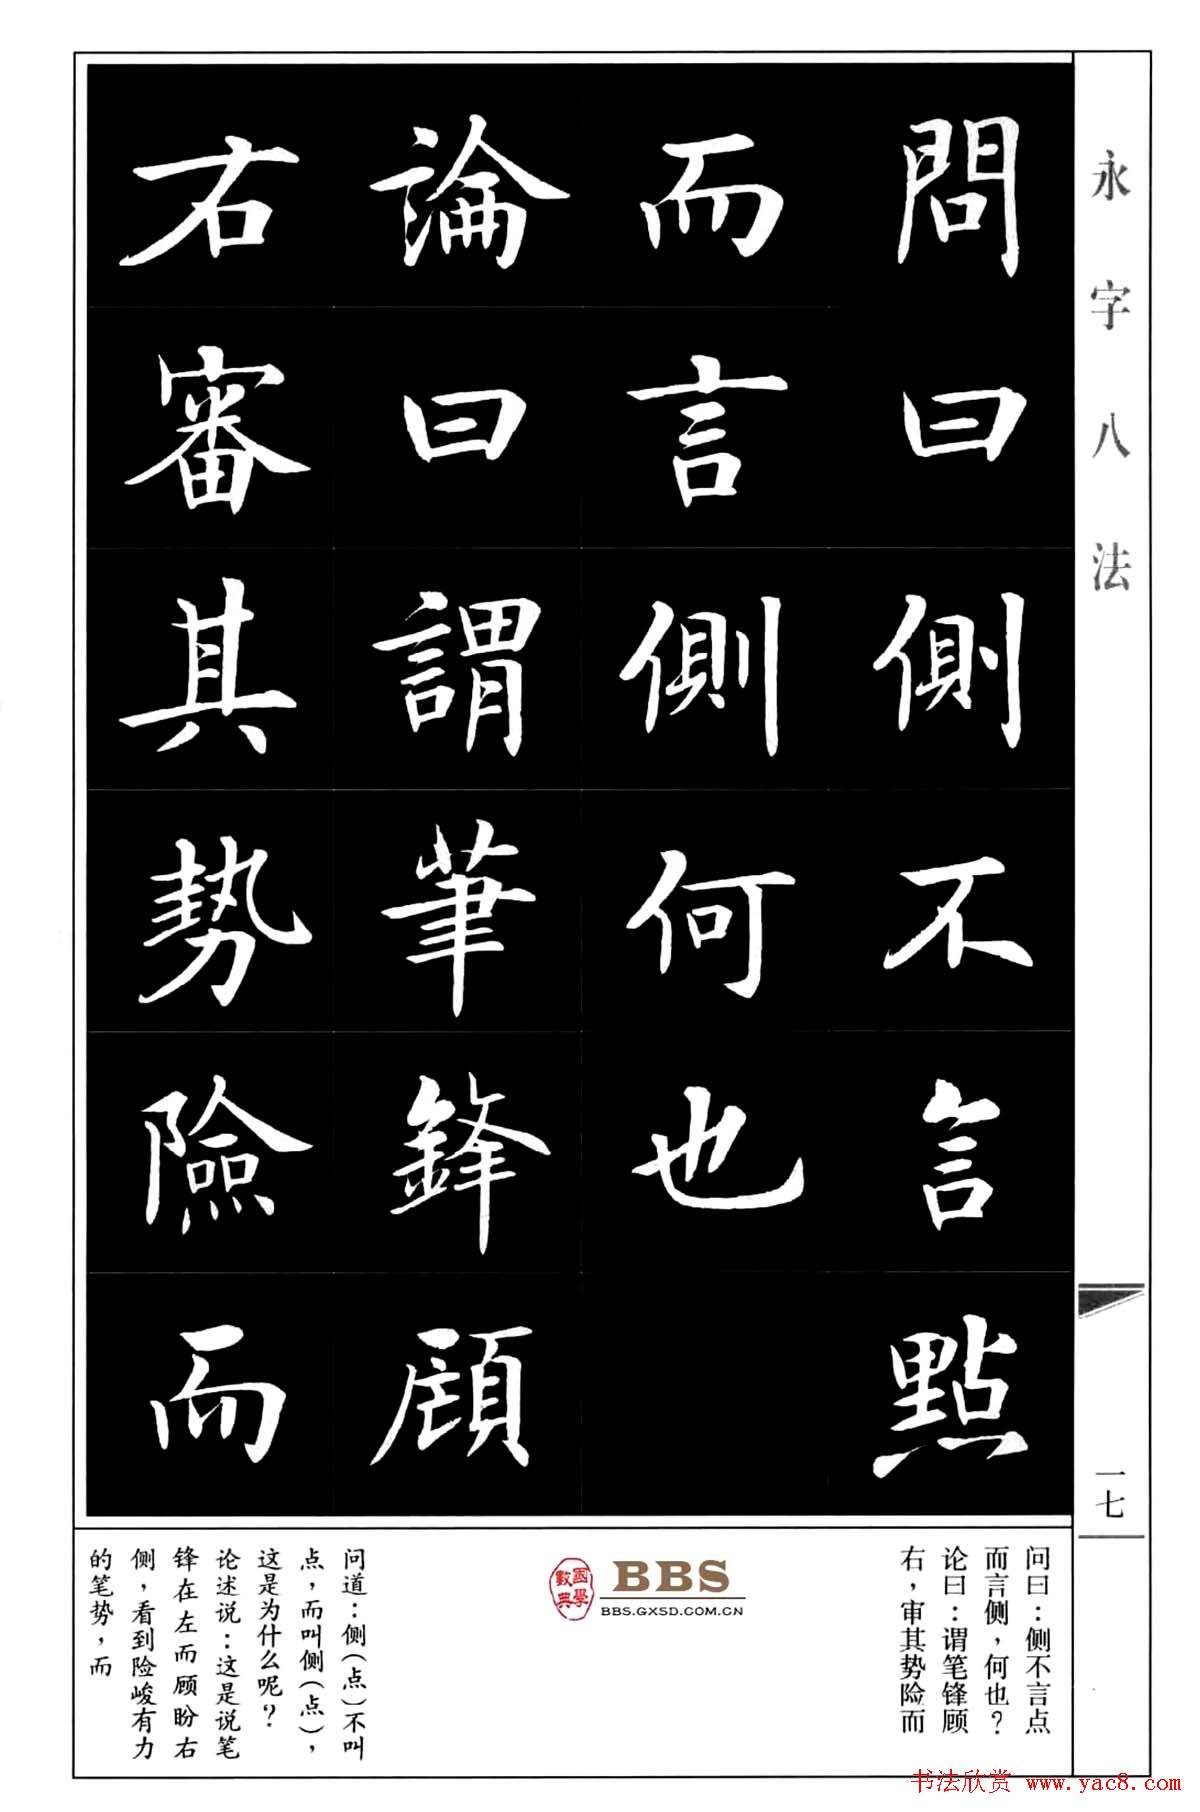 永字八法
問曰側不言點
而言側何也
論曰謂筆鋒顧
右審其勢險而
一七
问曰：侧不言点
而言侧，何也？
论曰：谓笔锋顾
右，审其势险而
國學
數典
BBS
BBS.GXSD.COM.CN
问道：侧（点）不叫
点，而叫侧（点），
这是为什么呢？
论述说：这是说笔
锋在左而顾盼右
侧，看到险峻有力
的笔势，而
书法欣赏 www.yac8.com